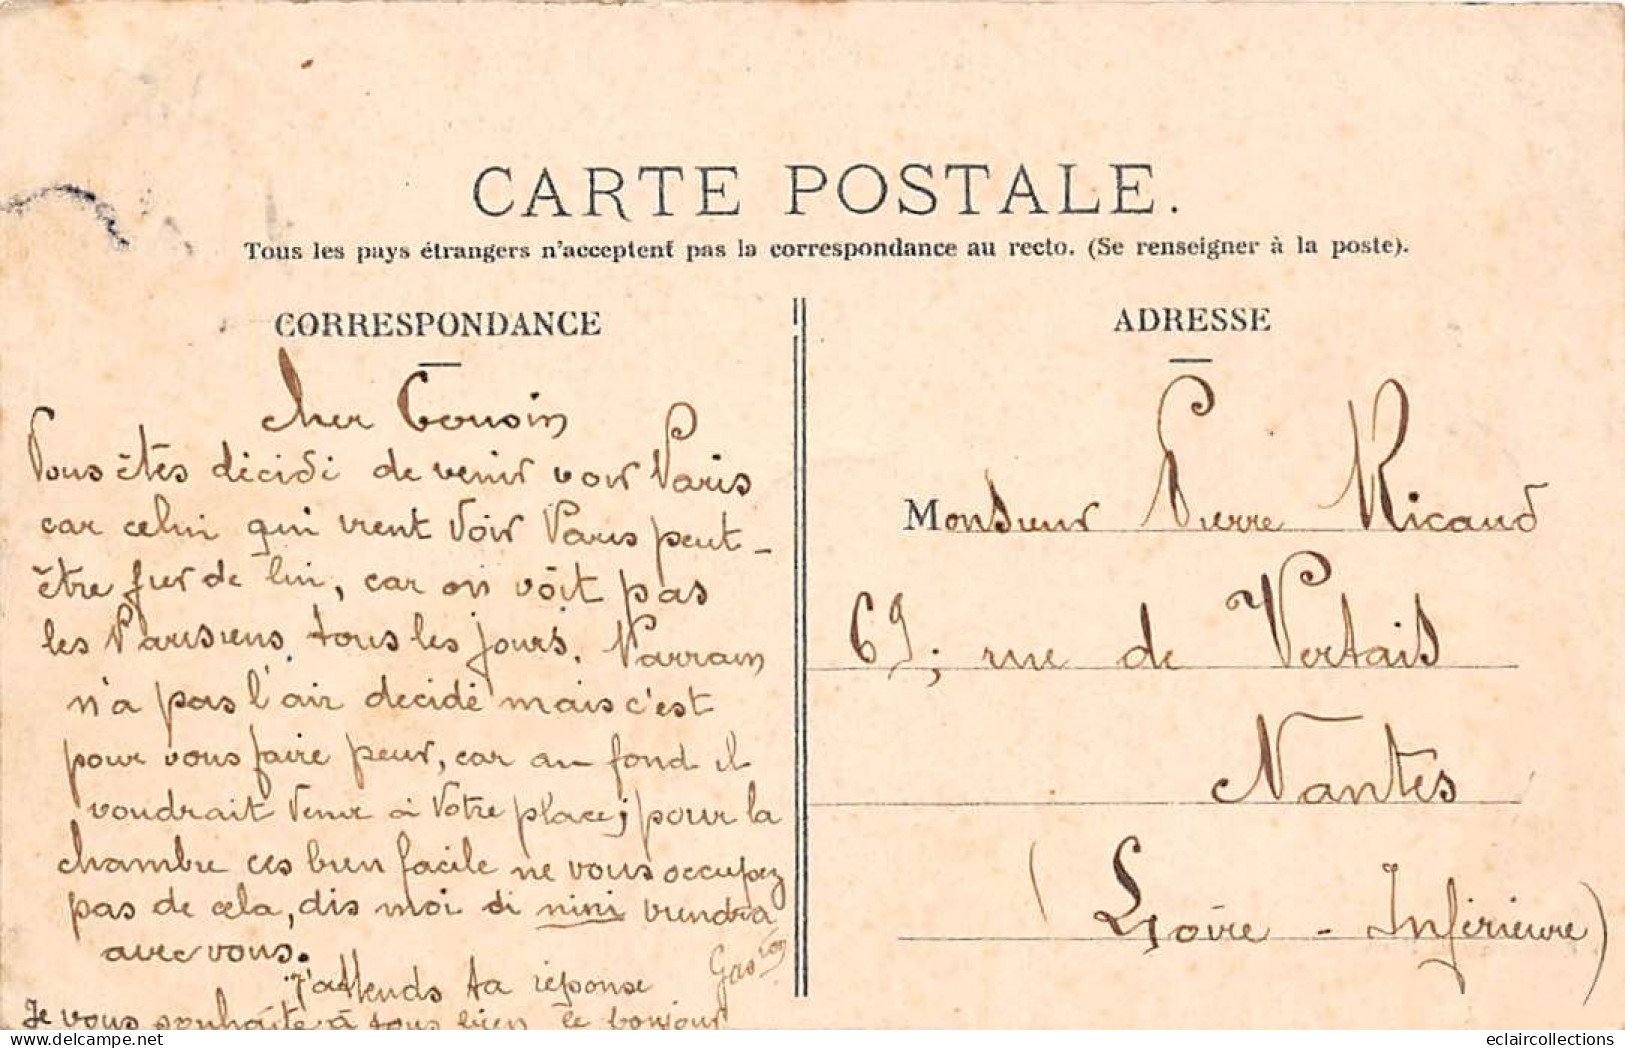 CARTE POSTALE.
Tous les pays étrangers n'acceptent pas la correspondance au recto. (Se renseigner à la poste).
CORRESPONDANCE
Cher Cousin
Vous êtes décidé de venir voir Paris
car celui qui vient voir Paris peut-
être fier de lui, car on vôit pas
les Parisiens tous les jours. Parrain
n'a pas l'air decidé mais c'est
pour vous faire peur, car au fond il
voudrait venir à votre place; pour la
chambre ces bien facile ne vous occupez
pas de cela, dis moi si nini viendra
avec vous.
J'attends ta réponse
Gaston
Je vous souhaite à tous bien le bonjour
ADRESSE
Monsieur Pierre Ricaud
69; rue de Vertais
Nantes
(Loire-Inférieure)
eclaircollections